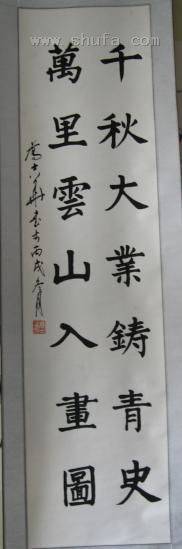 千秋大業鑄青史
萬里雲山入畫圖
丙戌冬月
www.shufa.com